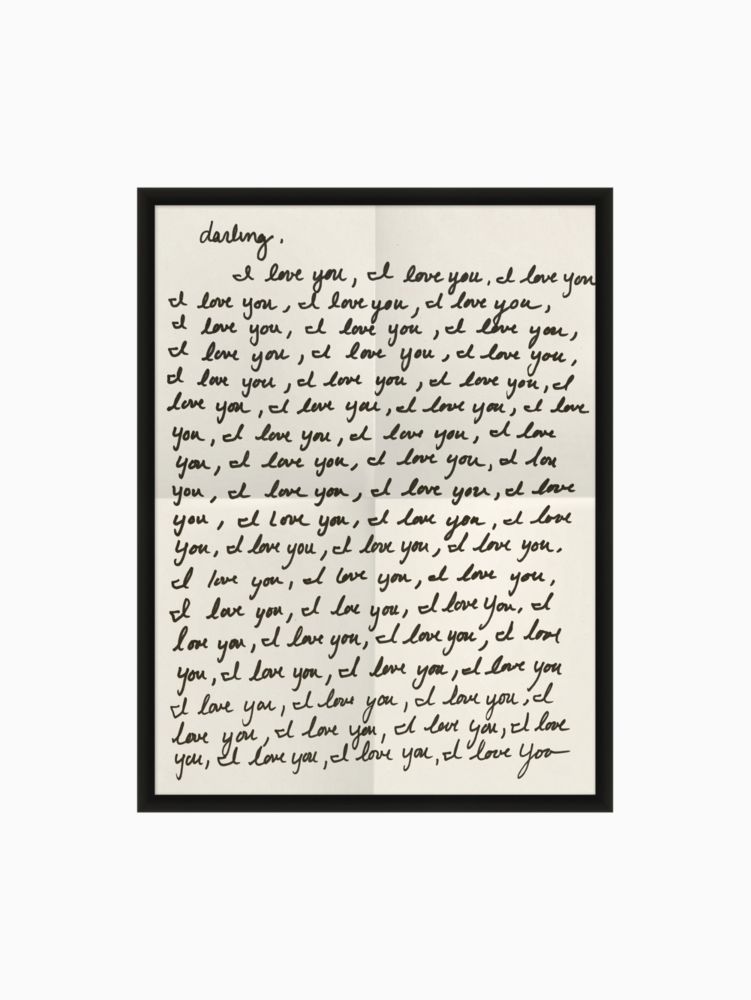 darling.
I love you, I love you, I love you
I love you, I love you, I love you,
I love you, I love you, I love you,
I love you, I love you, I love you,
I love you, I love you, I love you, I
love you, I love you, I love you, I love
you, I love you, I love you, I love
you, I love you, I love you, I lov
you, I love you, I love you, I love
you, I love you, I love you, I love
you, I love you, I love you, I love you.
I love you, I love you, I love you,
I love you, I love you, I love you, I
love you, I love you, I love you, I love
you, I love you, I love you, I love you
I love you, I love you, I love you, I
love you, I love you, I love you, I love
you, I love you, I love you, I love you